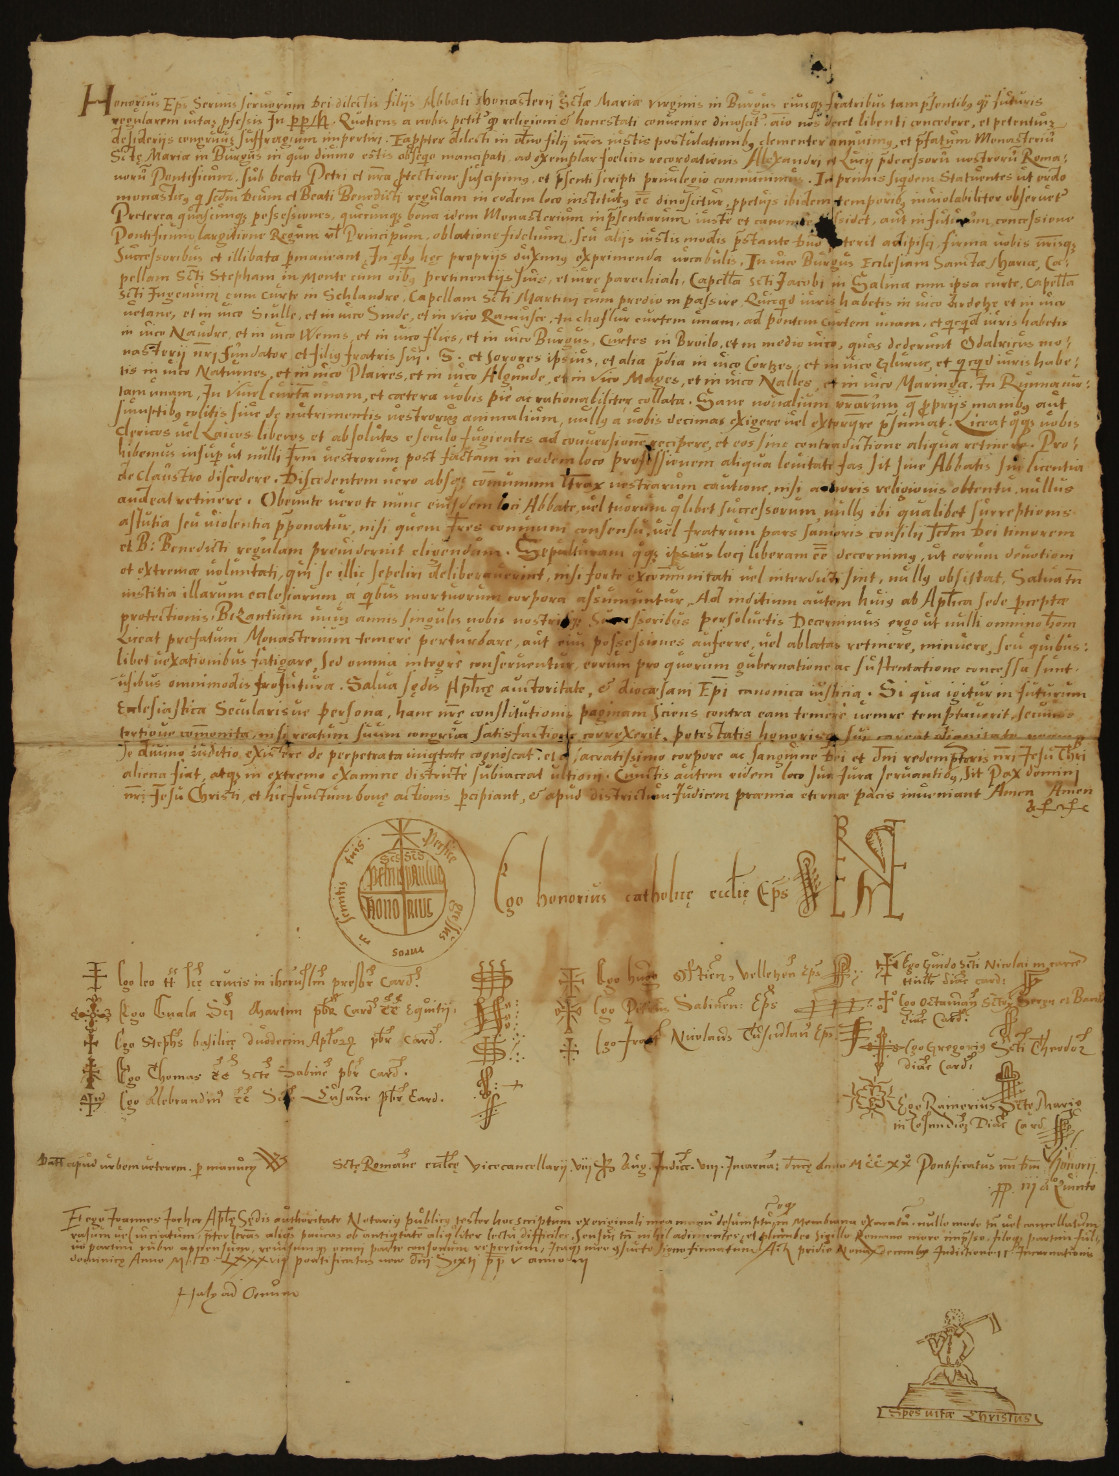 Honorius Epūs Servus servorum Dei dilectis filijs Abbati Monasterij Sctæ Mariæ virginis in Burgus eiusq; fratribus tam pn̄tibus q̄ futuris
regularem vitam professis In ppm. Quotiens a nobis petitur q̄ religioni et honestati convenire dinoscit' aīo nos decet libenti concedere, et petentiuz
desiderijs congruuz suffragium impertiri. Eapropter dilecti in dn̄o filij vr̄is iustis postulationibus clementer annuimus, et prefatum Monasteriū
Sctę Mariæ in Burgus in quo divino estis obseqo mancipati, ad exemplar foelicis recordationis Alexandri et Lucij predecessorū nostrorū Roma-
norū Pontificum, sub beati Petri et nr̄a protectione suscipimus, et pn̄ti scripti privilegio communimus. In primis siqdem statuentes ut ordo
monasticus q̄ scdm Deum et Beati Benedicti regulam in eodem loco institutus ēē dinoscitur, perpetuis ibidem temporibus inviolabiliter observetur
Preterea quascumq; possessiones, quecunq; bona idem Monasterium inpresentiarum iuste et canonice possidet, aut in futurum concessione
Pontificum largitione Regum vl Principum, oblatione fidelium, seu alijs iustis modis prestante Dn̄o poterit adipisci, firma vobis vr̄isq;
Successoribus et illibata permaneant. In qbus hęc proprijs duximus exprimenda vocabulis. In vico Burgus Ecclesiam Sanctæ Mariæ, Ca-
pellam Scti Stephani in Monte cum oībus pertinentijs suis, et iure parochiali, Capellā Scti Jacobi in Salina cum ipsa curte, Capellā
Scti Ingenuini cum curte in Schlandre, Capellam Scti Martini cum predio in passire, Quicqd iuris habetis in vico Ardetze et in vico
vetane, et in vico Siulle, et in vico Sinde, et in vico Ramusce, In choflur curtem unam, ad pontem curtem unam, et qcqd iuris habetis
in vico Naudre, et in vico Wenns, et in vico flies, et in vico Burgus, Curtes in Broilo, et in medio vico, quas dederunt Odalricus mo-
nasterij nr̄i fundator, et filius fratris sui. S. et sorores ipsius, et alia predia in vico Cortzes, et in vico Glurne, et qcqd iuris habe-
tis in vico Naturnes, et in vico Plaires, et in vico Algunde, et in vico Mayes, et in vico Nalles, et in vico Maringa. In Rumna cur-
tam unam, In Vinil curtā unam, et cætera vobis pie ac rationabiliter collata. Sane novalium vr̄arum q̄ proprijs manibus aut
sumptibus colitis sive de nutrimentis vestrorum animalium, nullus a vobis decimas exigere vel extorqre presumat. Liceat qq; vobis
clericos vel Laicos liberos et absolutos e seculo fugientes ad conversionē recipere, et eos sine contradictione aliqua retinere. Pro-
hibemus insup ut nulli frm vestrorum post factam in eodem loco professionem aliqua levitate fas sit sine Abbatis sui licentia
de claustro discedere. Discedentem vero absq; communium lr̄ax vestrarum cautione, nisi arctioris religionis obtentu, nullus
audeat retinere. Obeunte vero te nunc eiusdem loci Abbate, vel tuorum qlibet successorum, nullus ibi qualibet surreptionis
astutia seu violentia preponatur, nisi quem frēs communi consensu, vel fratrum pars sanioris consilij scdm Dei timorem
et B. Benedicti regulam previderint eligendum. Sepulturam qq; ipsius loci liberam ēē decernimus, ut eorum devotioni
et extremæ voluntati, qui se illic sepeliri deliberaverint, nisi forte excommunicati vel interdicti sint, nullus obsistat. Salva tn̄
iustitia illarum ecclesiarum a qbus mortuorum corpora assumuntur. Ad inditium autem huius ab Aplica sede perceptæ
protectionis. Bizantium unum annis singulis nobis nostrisq; Successoribus persolvetis Decernimus ergo ut nulli omnino hom
Liceat prefatum Monasterium temere perturbare, aut eius possessiones auferre, vel ablatas retinere, minuere, seu quibus-
libet vexationibus fatigare, Sed omnia integre conserventur, eorum pro quorum gubernatione ac sustentatione concessa sunt
usibus omnimodis profutura. Salva sędis Aplicę auctoritate, et diocæsani Epī canonica iusticia. Si qua igitur in futurum
Ecclesiastica Secularisve persona, hanc nr̄e constitutionis paginam sciens contra eam temere venire temptaverit, secundo
tertiove commonita, nisi reatum suum congrua satisfactione correxerit, potestatis honorisq; sui careat dignitate
se divino iudicio existere de perpetrata iniqtate cognoscat. et a sacratissimo corpore ac sanguine Dei et dn̄i redemptoris nr̄i Jesu Chri
aliena fiat, atq; in extremo examine districte subiaceat ultioni. Cunctis autem eidem loco sua iura servantibus, sit Pax domini
nr̄i Jesu Christi, et hic fructum bonę actionis percipiant, et apud districtum iudicem præmia eternæ pacis inveniant Amen Amen
Perfice gressus meos in semitis tuis
Scs Scs
Petrus Paulus
Honorius
Ego honorius catholicę ecclię Epūs
Ego leo tt Scē crucis in iherusalem presbr Card.
Ego Guala Sti Martini pbr Card tt Equitij.
Ego Stephs basilicę duodecim Aplorz pbr Card.
Ego Thomas tt Scte Sabine pbr Card.
Ego Aldebrandin tt Scti Eusanne pbr Card.
Ego hugo Ostien, Velletren Epūs
Ego Petrus Sabinen: Epūs
Ego frater Nicolaus Tusculan Epūs
Ego Guido Scti Nicolai in carcē
diac card:
Ego Octavian Sctor Sergij et Bachi
diac Card.
Ego Gregorius Scti Theodor
diac Card
Ego Rainerius Scte Marię
in Cosmidin Diac Card
Datt apud urbem veterem per manum W Sctę Romane ecclię Vicecancellarij. vij Aug. Indict. viij. Incarna: dn̄icę Anno MCCXX Pontificatus Dn̄i Honorij
pp. iij a quinto
Et ego Joannes Aplicę Sędis authoritate Notarius publicus
dominicę Anno M D LXXXVIII pontificatus Dn̄i Sixti pp V anno
Spes vitæ Christus